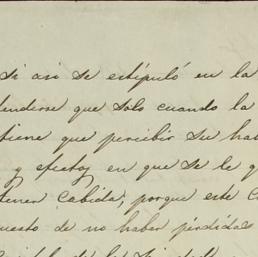 si asi se estipuló en la
tenderse que solo cuando la
tiene que percibir su hab
y efectos en que se le q
tener cabida; porque este c
uesto de no haber pérdidas